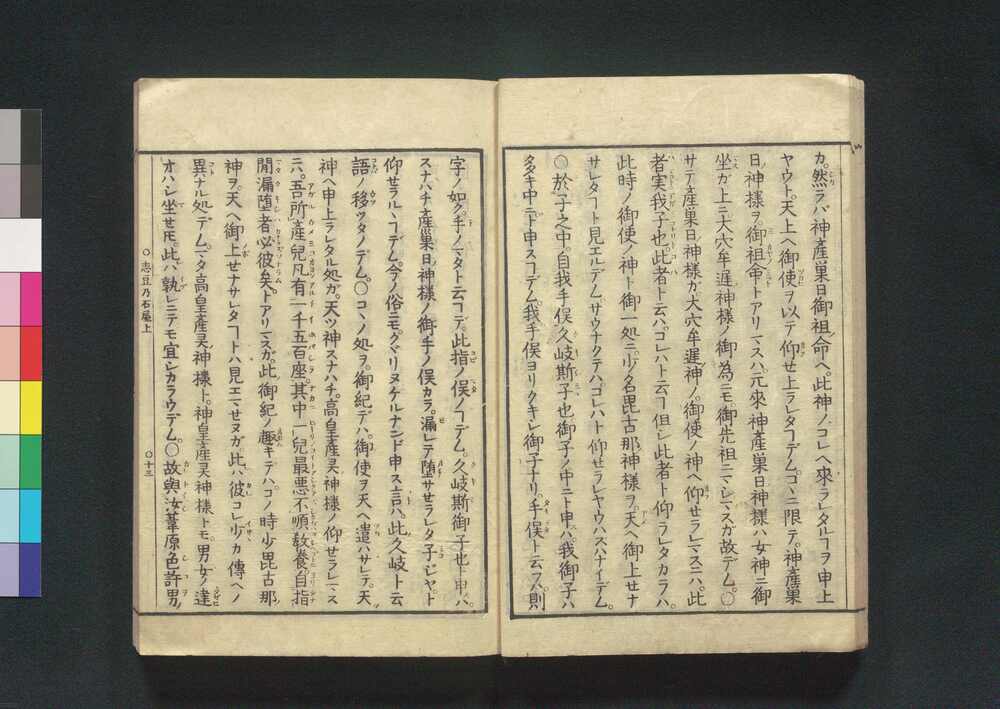 カ。然ラバ神産巣日御祖命ヘ。此神ノ。コレヘ來ラレタルヿヲ申上
ヤウト。天上ヘ御使ヲ以テ仰せ上ラレタヿデム。コヽニ限テ。神産巣
日ノ神様ヲ。御祖命トアリマスハ。元來神産巣日神様ハ女神ニ御
坐ガ上ニ大穴牟遅神様ノ御為ニモ。御先祖ニマシマスガ故デム。〇
サテ産巣日神様ガ大穴牟遅神ノ。御使ノ神ヘ仰せラレマスニハ。此
者実我子也。此者ト云ハ。コレハト云フヿ但シ此者ト仰ラレタカラハ。
此時ノ御使ノ神ト御一処ニ。少名毘古那神様ヲ。天ヘ御上せナ
サレタヿト見エルデム。サウナクテハ。コレハト仰せラレヤウハスハナイデム。
〇於子之中。自我手俣久岐斯子也御子ノ中ニト申ハ。我御子ハ
多キ中ニト申スヿデム。我手俣ヨリクキシ御子ナリ。手俣ト云フハ。則
字ノ如ク。手ノマタト云ヿデ。此指ノ俣ノヿデム。久岐斯御子也ト申ハ。
スナハチ産巣日神様ノ御手ノ俣カラ。漏レテ堕サせラレタ子ジヤト
仰せラルヽヿデム。今ノ俗ニモ。クヾリヌケルナンドト申ス言ハ。此久岐ト云
語ノ移ツタノデム。〇コヽノ処ヲ。御紀デハ。御使ヲ天ヘ遣ハサレテ。天
神ヘ申上ラレタル処ガ。天ツ神スナハチ。高皇産灵神様ノ仰せラレマス
ニ。吾所産兒凡有一千五百座其中一兒最悪不順教養自指
間漏堕者必彼矣。トアリマスガ。此御紀ノ趣キデハ。コノ時少毘古那
神ヲ。天ヘ御上せナサレタヿトハ見エマせヌガ。此ハ彼コレ少カ傳ヘノ
異ナル処デム。マタ高皇産灵神様ト。神皇産灵神様トモ。男女ノ違
オハシ坐せ𪜈。此ハ孰レニテモ宜シカラウデム。〇故與汝葦原色許男
〇志豆乃石屋上
〇十三